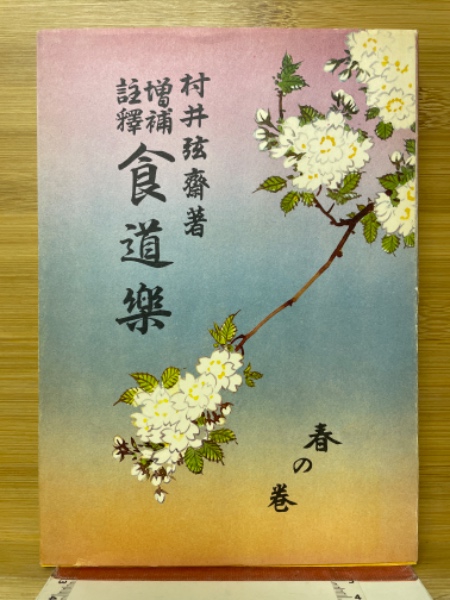 村井弦齋著
増補
註釋
食道樂
春の巻